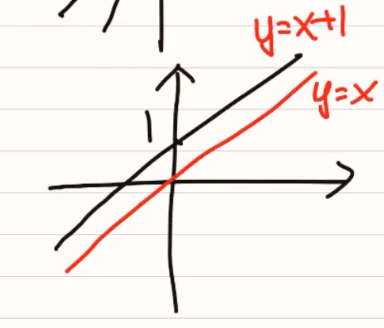 y=x+1
y=x
1